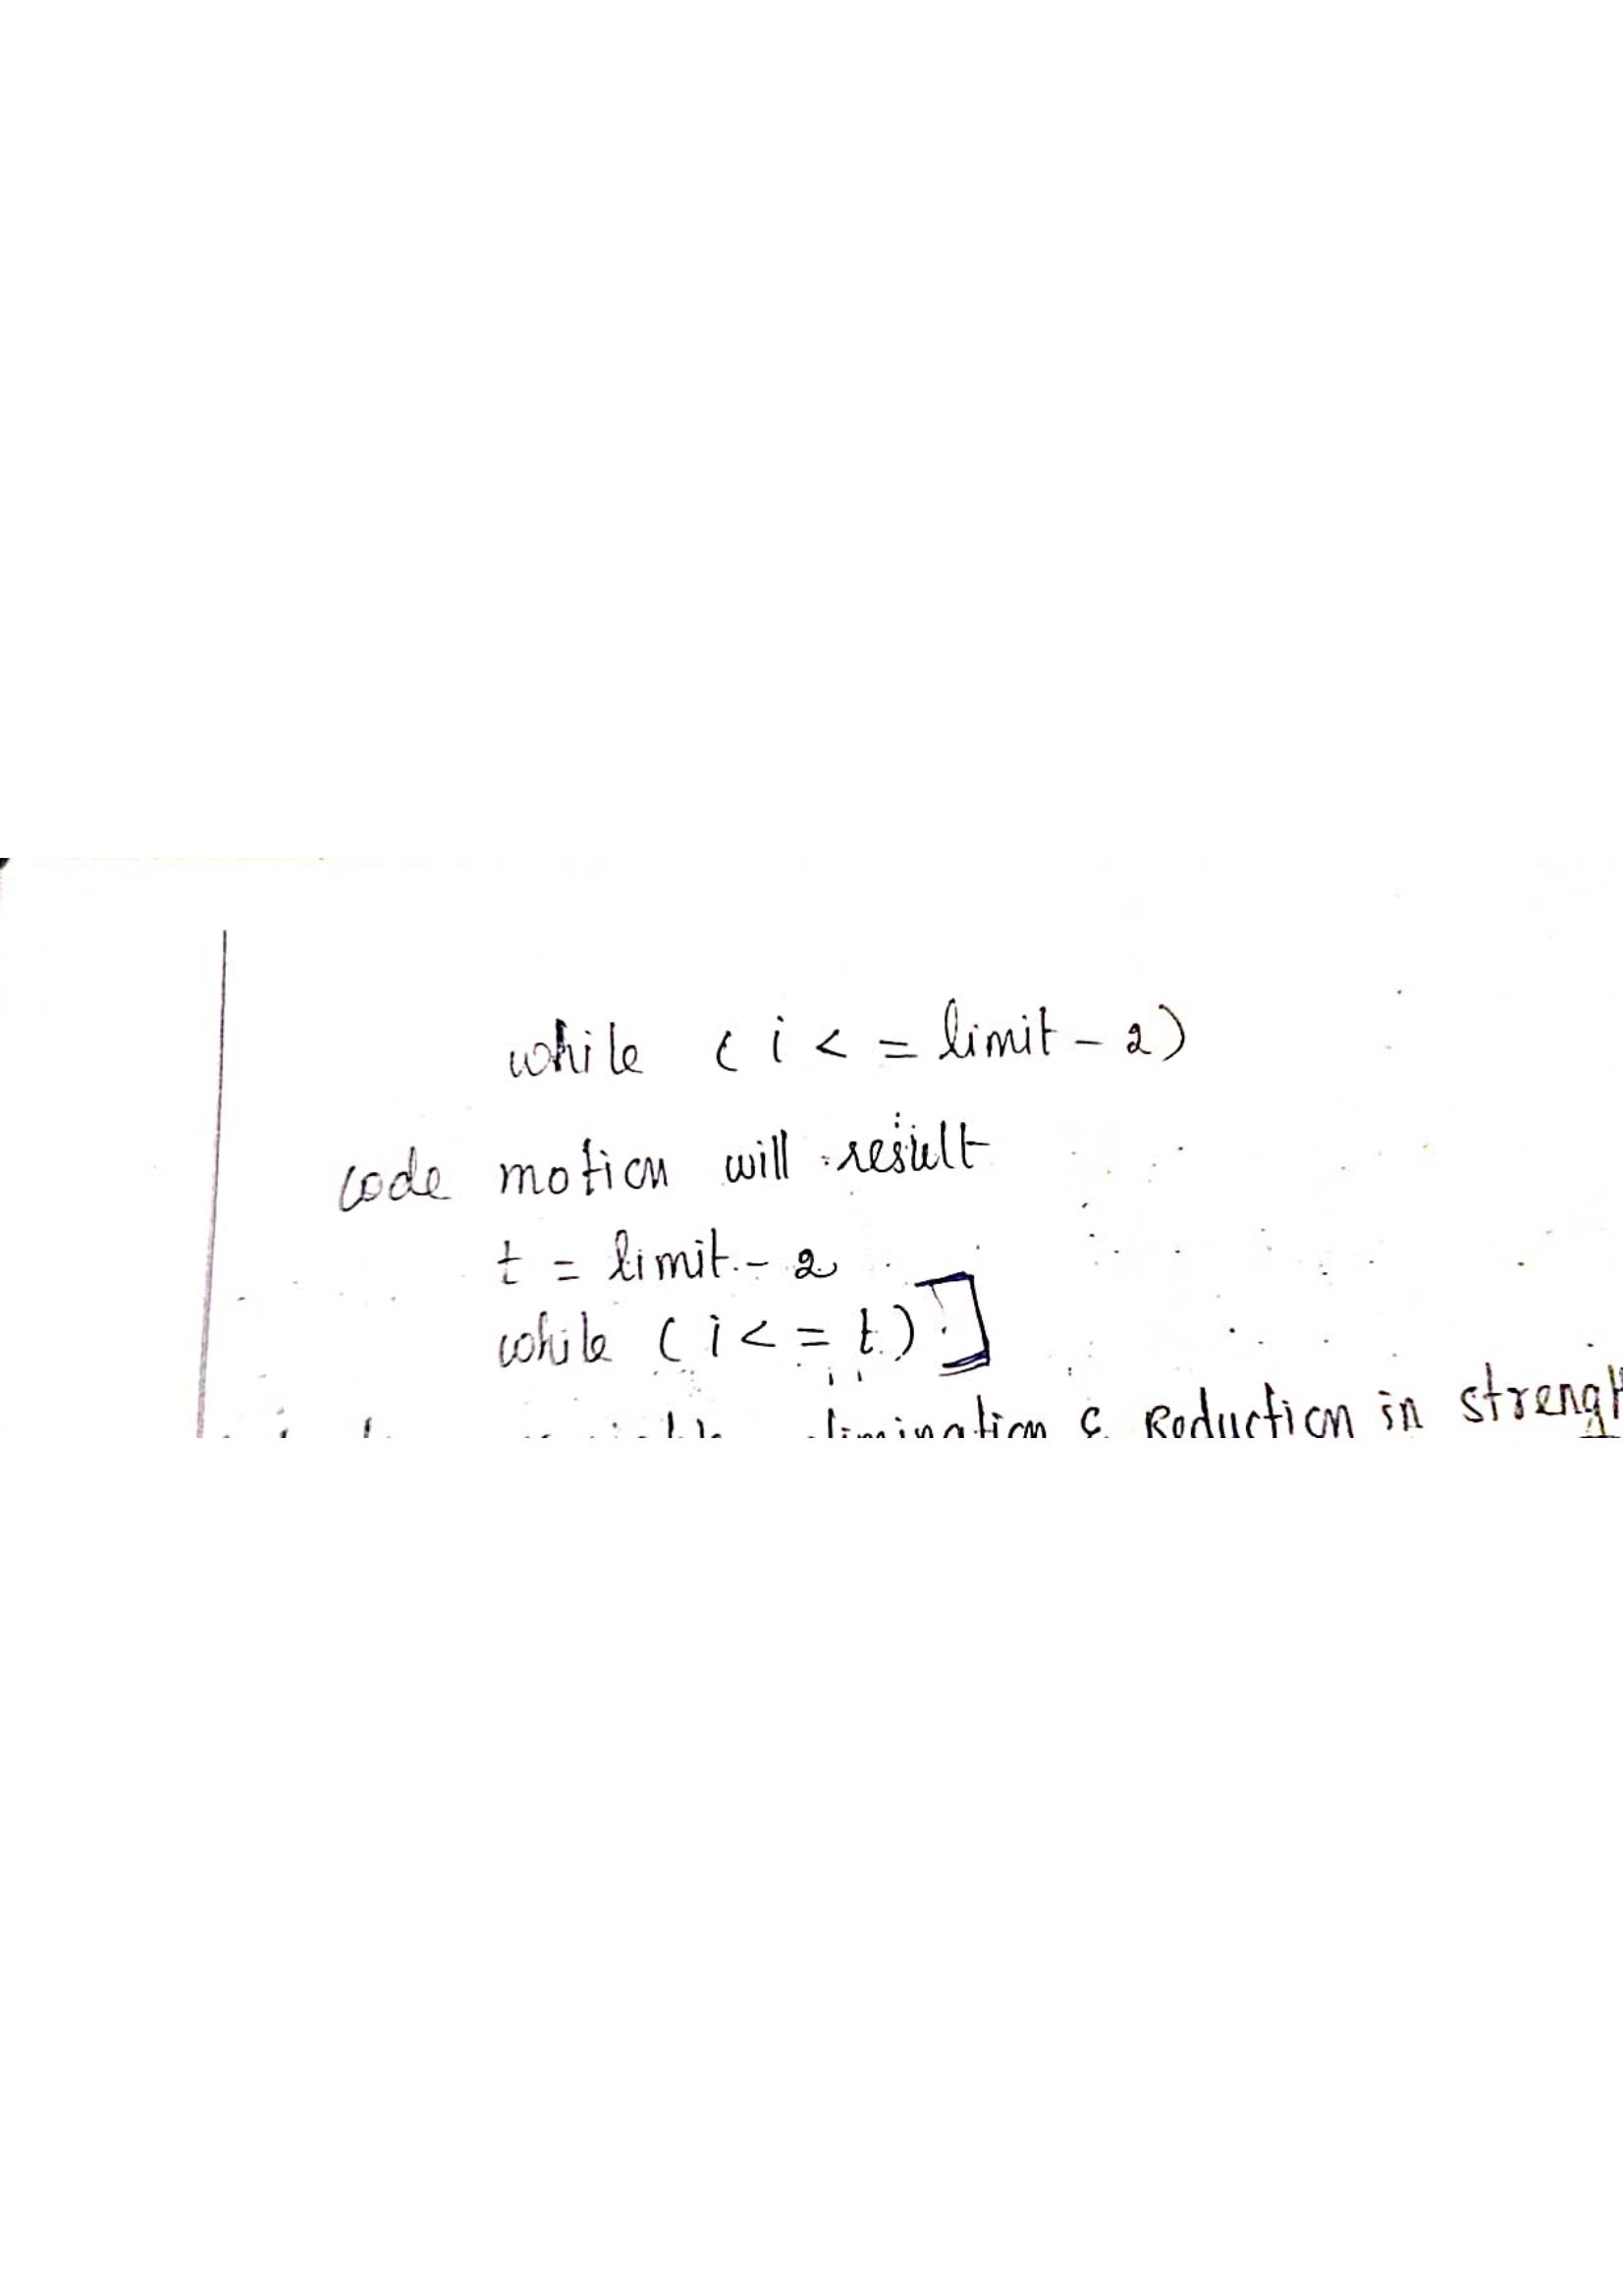 while ( i < = limit - 2)
code motion will result
t = limit - 2
while ( i < = t ) ]
elimination & Reduction in